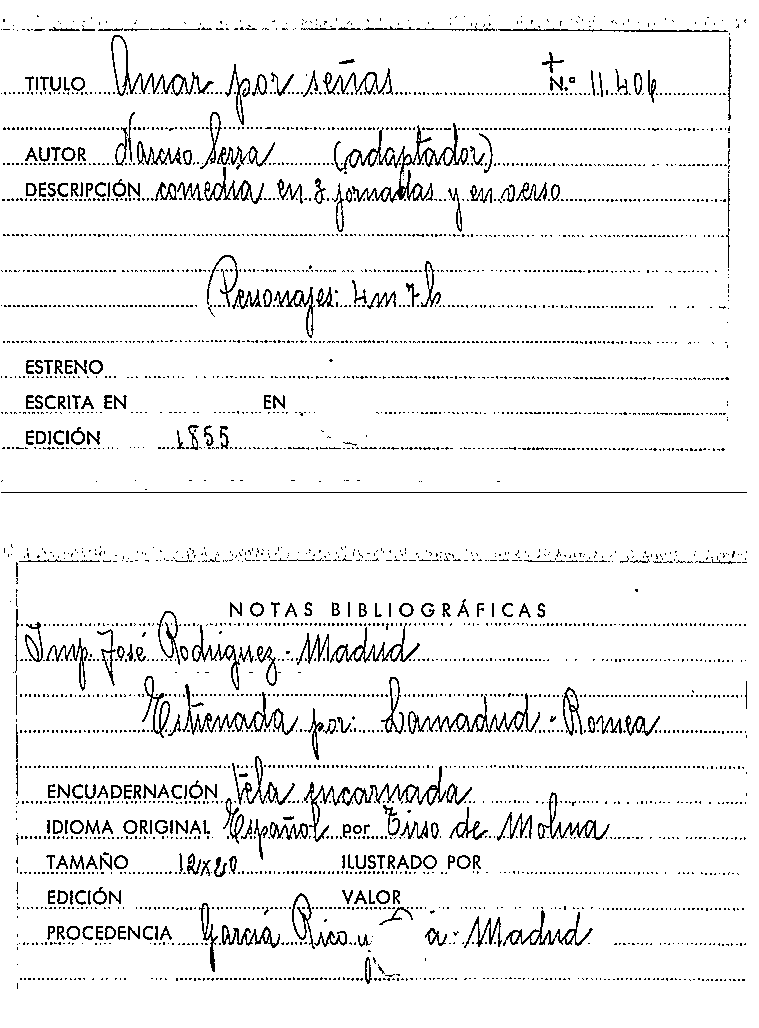 TITULO Amar por señas N.º 11.406
AUTOR Narciso Serra (adaptador)
DESCRIPCIÓN comedia en 3 jornadas y en verso
Personajes: 4m 7h
ESTRENO
ESCRITA EN EN
EDICIÓN 1855
NOTAS BIBLIOGRÁFICAS
Imp. José Rodriguez - Madrid
Estrenada por: Lamadrid - Romea
ENCUADERNACIÓN tela encarnada
IDIOMA ORIGINAL Español por Tirso de Molina
TAMAÑO 12x20 ILUSTRADO POR
EDICIÓN VALOR
PROCEDENCIA García Rico y - Madrid